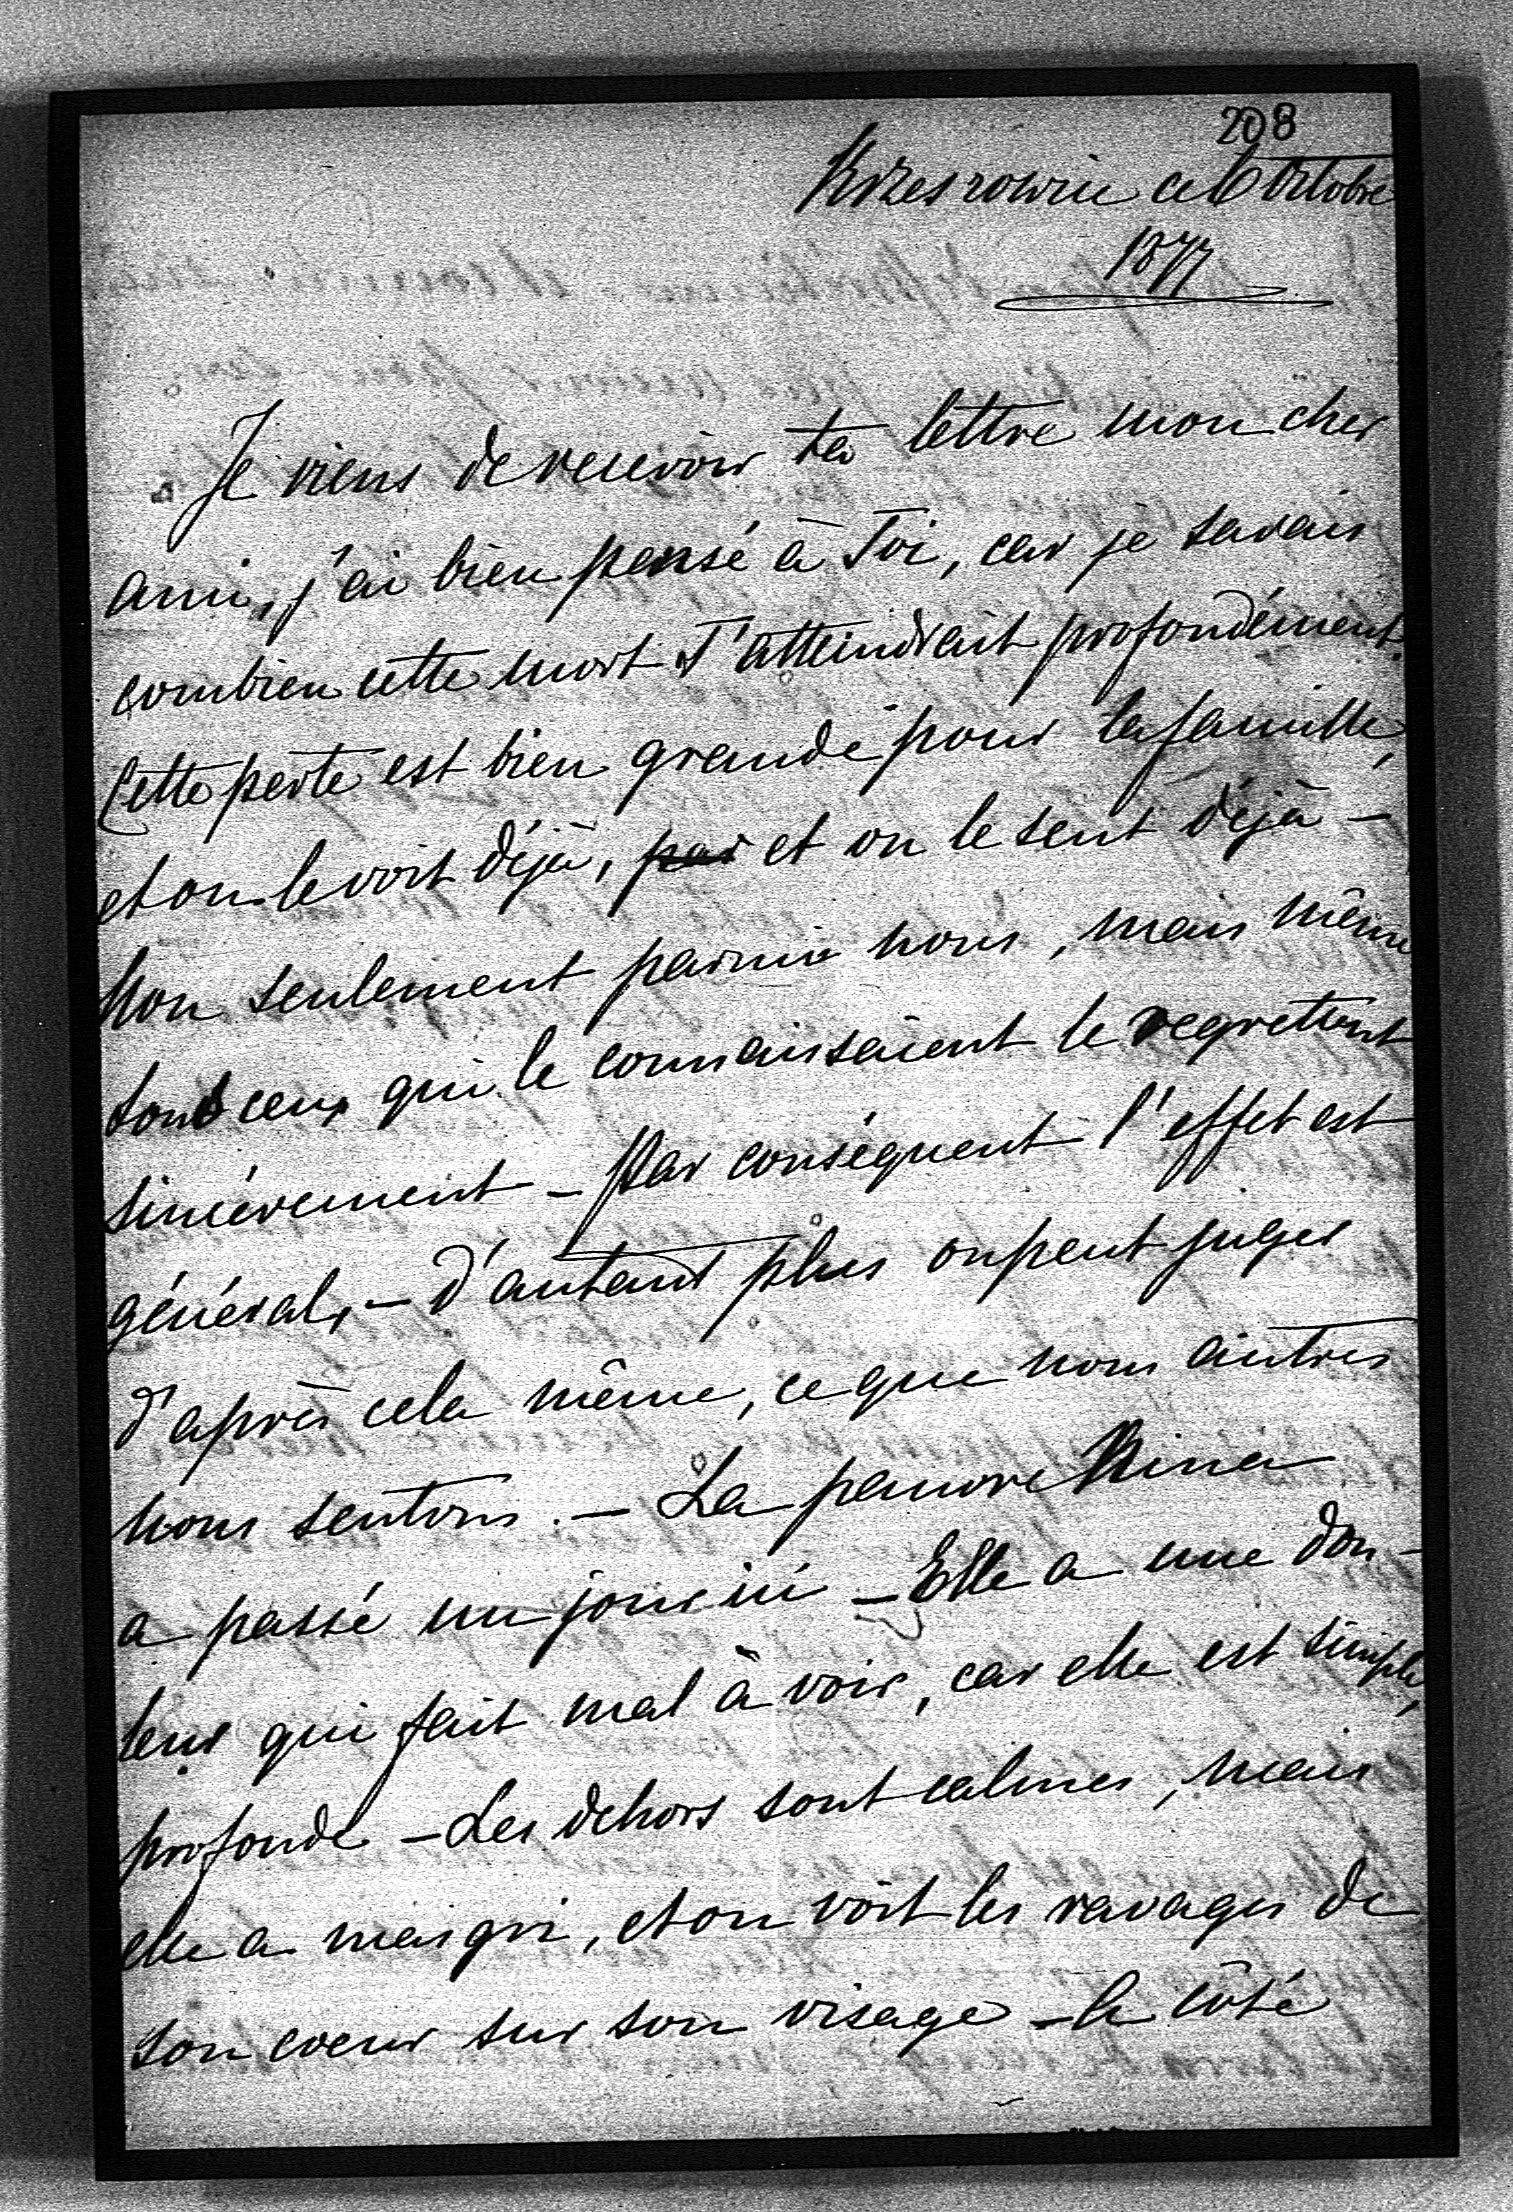 208
Krzeszowice ce 6 Octobre
1877
Je viens de recevoir ta lettre mon cher
ami, j'ai bien pensé à Toi, car je savais
combien cette mort T'atteindrait profondément.
Cette perte est bien grande pour la famille,
et on le voit déjà, par et on le sent déjà –
Non seulement parmi nous, mais même
tous ceux qui le connaissaient le regrettent
sincèrement – Par conséquent l'effet est
général, – d'autant plus on peut juger
d'après cela même, ce que nous autres
nous sentons. – La pauvre Nina
a passé un jour ici – Elle a une dou-
leur qui fait mal à voir, car elle est simple,
profonde – Les dehors sont calmes, mais
elle a maigri, et on voit les ravages de
son coeur sur son visage – le côté